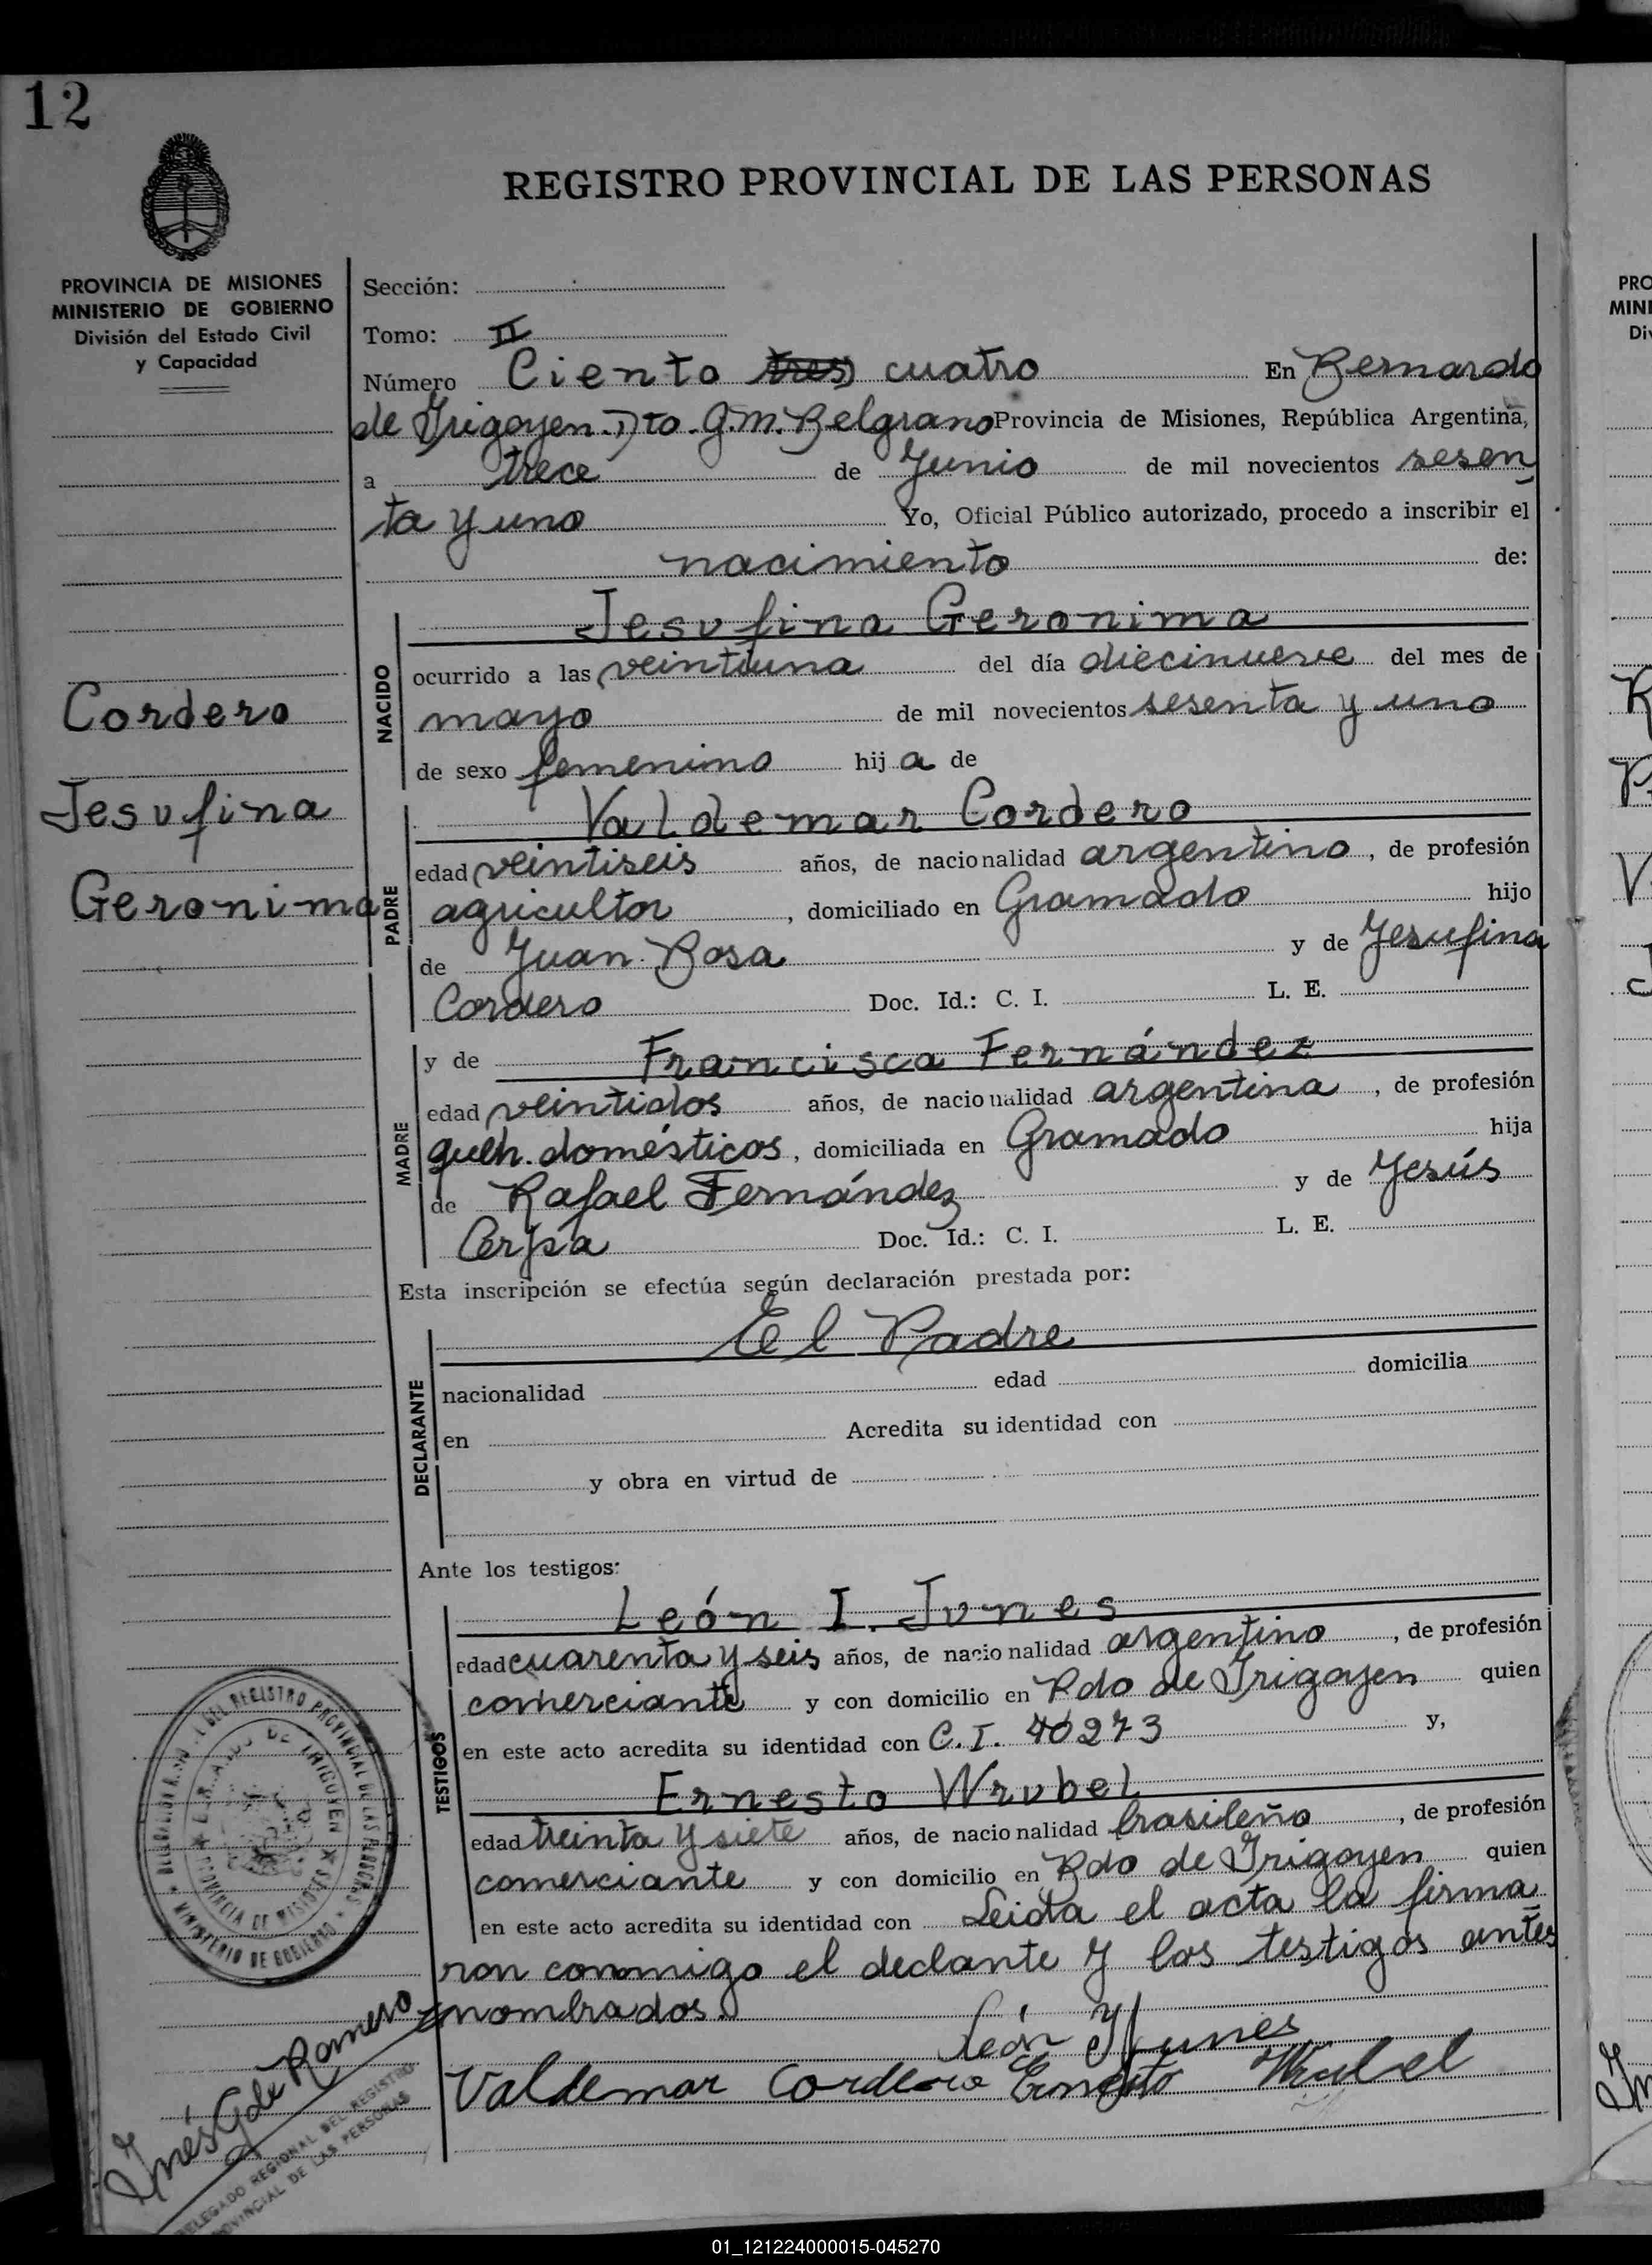 12
REGISTRO PROVINCIAL DE LAS PERSONAS
PROVINCIA DE MISIONES
MINISTERIO DE GOBIERNO
División del Estado Civil
y Capacidad
Cordero
Jesufina
Geronima
Sección:
Tomo: II
Número Ciento tres cuatro En Bernardo
de Irigoyen. Dto. G.M. Belgrano Provincia de Misiones, República Argentina,
a trece de Junio de mil novecientos sesen
ta y uno Yo, Oficial Público autorizado, procedo a inscribir el
nacimiento de:
NACIDO
Jesufina Geronima
ocurrido a las veintiuna del día diecinueve del mes de
mayo de mil novecientos sesenta y uno
de sexo femenino hij a de
PADRE
Valdemar Cordero
edad veintiseis años, de nacionalidad argentino, de profesión
agricultor, domiciliado en Gramado hijo
de Juan Rosa y de Jesufina
Cordero Doc. Id.: C. I. L. E.
MADRE
y de Francisca Fernández
edad veintidos años, de nacionalidad argentina, de profesión
queh. domésticos, domiciliada en Gramado hija
de Rafael Fernández y de Jesús
Cerpa Doc. Id.: C. I. L. E.
Esta inscripción se efectúa según declaración prestada por:
DECLARANTE
El Padre
nacionalidad edad domicilia
en Acredita su identidad con
y obra en virtud de
Ante los testigos:
TESTIGOS
León I. Junes
edad cuarenta y seis años, de nacionalidad argentino, de profesión
comerciante y con domicilio en Bdo de Irigoyen quien
en este acto acredita su identidad con C.I. 40273 y,
Ernesto Wrubel
edad treinta y siete años, de nacionalidad brasileño, de profesión
comerciante y con domicilio en Bdo de Irigoyen quien
en este acto acredita su identidad con Leida el acta la firma
ron conmigo el declante y los testigos antes
nombrados.
León Y Junes
Valdemar Cordero Ernesto Wrubel
Inés G de Romero
DELEGADO REGIONAL DEL REGISTRO
PROVINCIAL DE LAS PERSONAS
DEL REGISTRO PROVINCIAL DE LAS PERSONAS
MINISTERIO DE GOBIERNO
DE IRIGOYEN
PROVINCIA DE MISIONES
PRO
MINI
Di
01_121224000015-045270